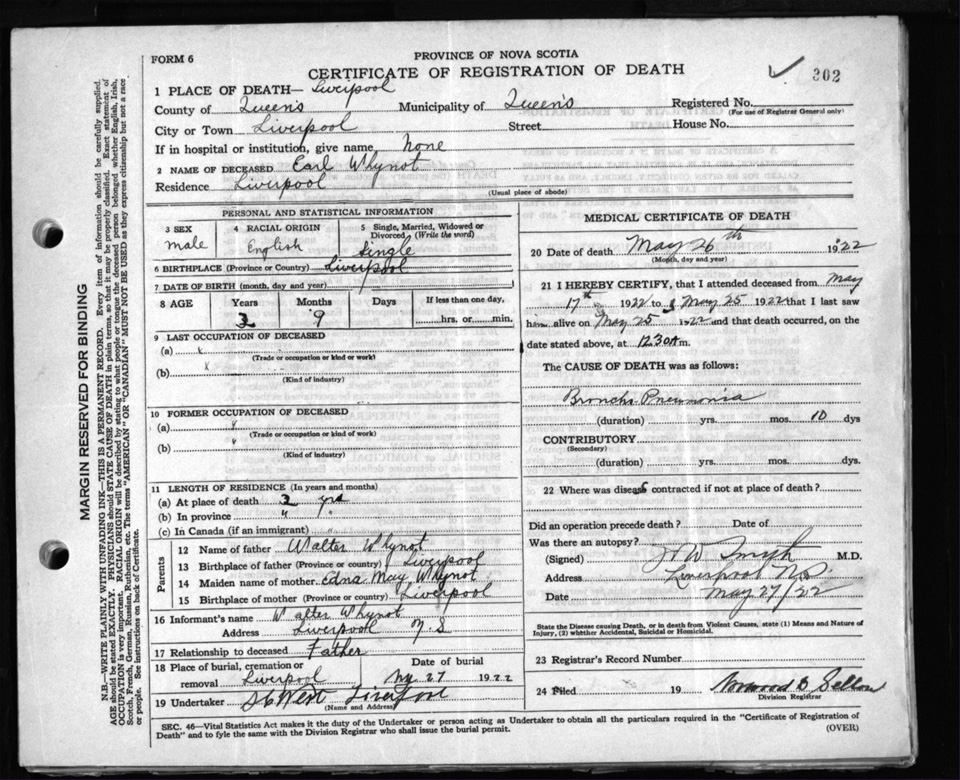 FORM 6
PROVINCE OF NOVA SCOTIA
CERTIFICATE OF REGISTRATION OF DEATH
302
1 PLACE OF DEATH— Liverpool
County of Queen's Municipality of Queen's Registered No.
(For use of Registrar General only)
City or Town Liverpool Street House No.
If in hospital or institution, give name None
2 NAME OF DECEASED Earl Whynot
Residence Liverpool
(Usual place of abode)
PERSONAL AND STATISTICAL INFORMATION
3 SEX
male
4 RACIAL ORIGIN
English
5 Single, Married, Widowed or Divorced (Write the word)
Single
6 BIRTHPLACE (Province or Country) Liverpool
7 DATE OF BIRTH (month, day and year)
8 AGE Years Months Days If less than one day,
3 9 hrs. or min.
9 LAST OCCUPATION OF DECEASED
(a)
(Trade or occupation or kind or work)
(b)
(Kind of industry)
10 FORMER OCCUPATION OF DECEASED
(a) "
(Trade or occupation or kind of work)
(b) "
(Kind of industry)
11 LENGTH OF RESIDENCE (In years and months)
(a) At place of death 3 yrs
(b) In province " "
(c) In Canada (if an immigrant)
Parents
12 Name of father Walter Whynot
13 Birthplace of father (Province or country) Liverpool
14 Maiden name of mother Edna May Whynot
15 Birthplace of mother (Province or country) Liverpool
16 Informant's name Walter Whynot
Address Liverpool N.S
17 Relationship to deceased Father
18 Place of burial, cremation or removal Liverpool
Date of burial
May 27 1922
19 Undertaker West Liverpool
(Name and Address)
MEDICAL CERTIFICATE OF DEATH
20 Date of death May 26th 1922
(Month, day and year)
21 I HEREBY CERTIFY, that I attended deceased from May
17th 1922 to May 25 1922 that I last saw
him alive on May 25 1922 and that death occurred, on the
date stated above, at 12.30 A m.
The CAUSE OF DEATH was as follows:
Broncho Pneumonia
(duration) yrs. mos. 10 dys
CONTRIBUTORY
(Secondary)
(duration) yrs. mos. dys.
22 Where was disease contracted if not at place of death?
Did an operation precede death? Date of
Was there an autopsy?
(Signed) J W Smith M.D.
Address Liverpool N.S.
Date May 27/22
State the Disease causing Death, or in death from Violent Causes, state (1) Means and Nature of
Injury, (2) whether Accidental, Suicidal or Homicidal.
23 Registrar's Record Number
24 Filed 19
Division Registrar
SEC. 46—Vital Statistics Act makes it the duty of the Undertaker or person acting as Undertaker to obtain all the particulars required in the "Certificate of Registration of
Death" and to fyle the same with the Division Registrar who shall issue the burial permit. (OVER)
MARGIN RESERVED FOR BINDING
N.B.—WRITE PLAINLY WITH UNFADING INK—THIS IS A PERMANENT RECORD. Every item of information should be carefully supplied.
AGE should be stated EXACTLY. PHYSICIANS should STATE CAUSE OF DEATH in plain terms, so that it may be properly classified. Exact statement of
OCCUPATION is very important. RACIAL ORIGIN will be described by stating to what people or tongue the deceased person belonged whether English, Irish,
Scotch, French, German, Russian, Ruthenian, etc. The terms "AMERICAN" OR "CANADIAN" MUST NOT BE USED as they express citizenship but not a race
or people. See instructions on back of Certificate.